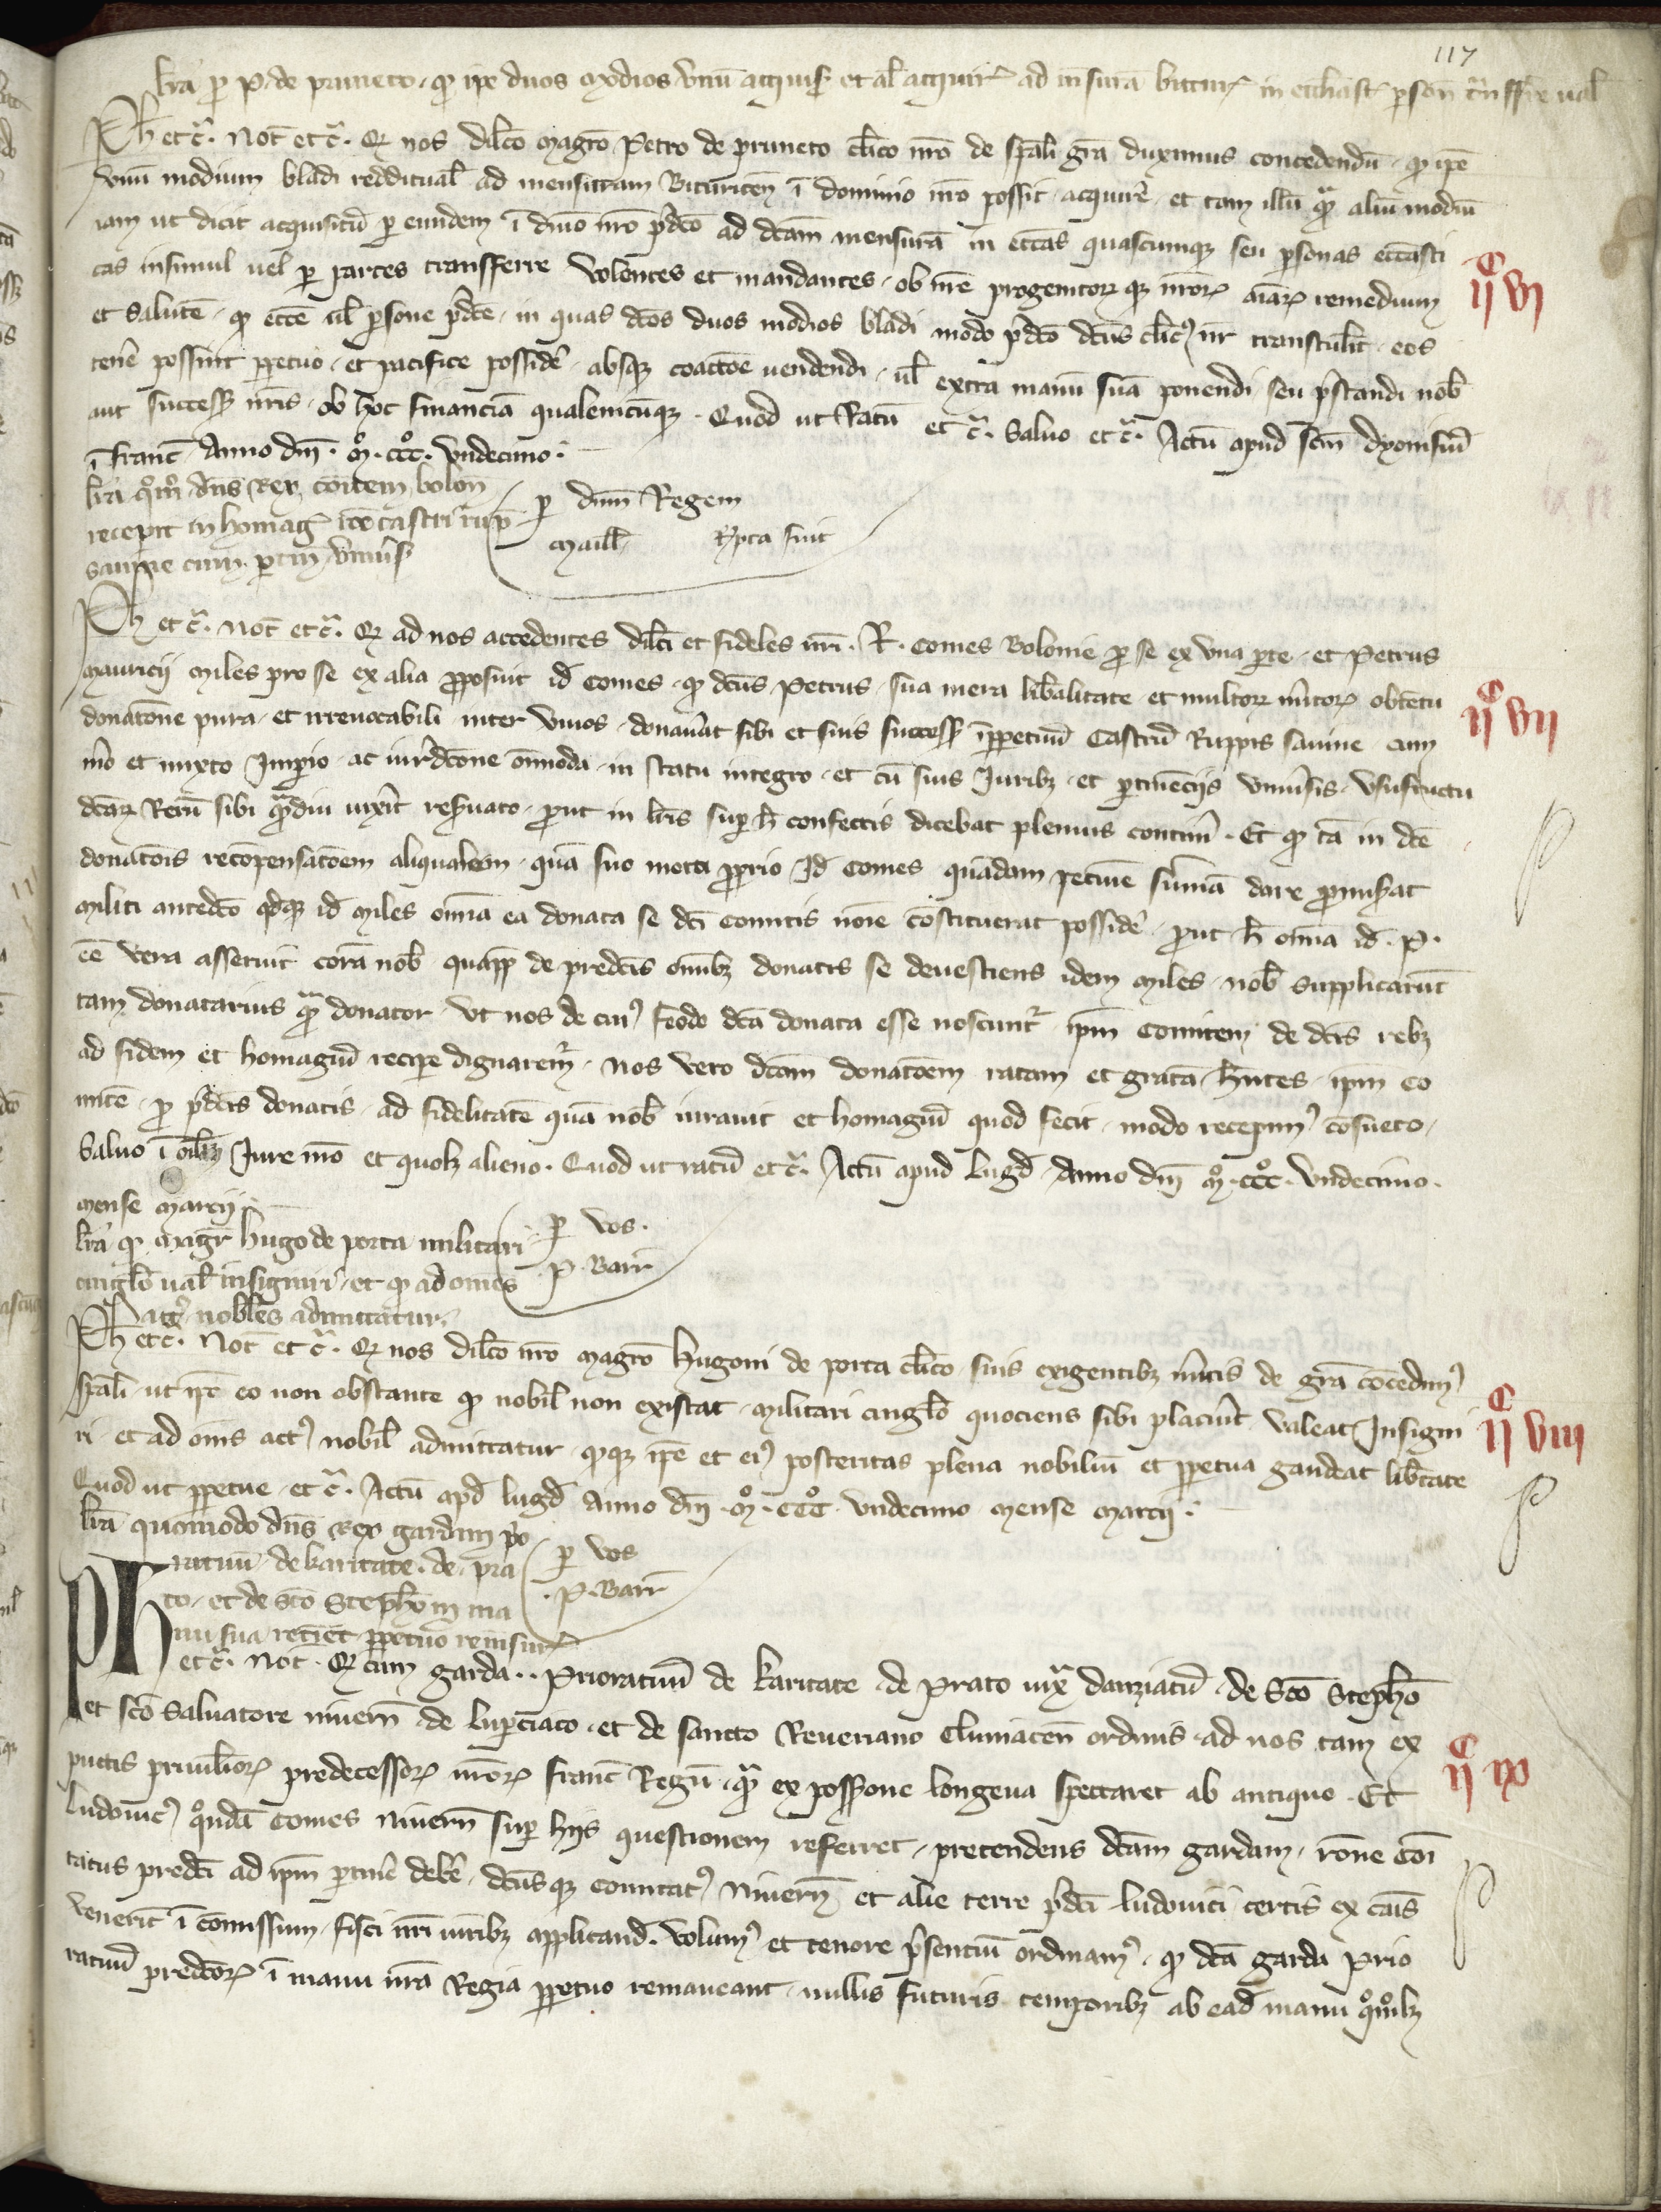 117
lrā p̱ P. de pruneto. qđ ip̄e duos modios vnū acquis̄ et al̄ acquir̄ ad mensurā bitur̄ in eccl̄iast̄ ꝑson̄ tr̄nsferre ual̄
Ph̄ etc̄. Not̄ etc̄. Qꝛ nos dil̄co magr̄o Petro de pruneto cl̄ico nr̄o de sp̄ali gr̄a duximus concedendū. qđ ip̄e
vnū modium bladi reddituał ad mensuram Bituricen̄ ī dominio nr̄o possit acquirē. et tam illū qͣ aliū modiū
iam ut dicit acquisitū ꝑ eundem ī dnīo nr̄o p̄dc̄o ad dc̄am mensurā in ecc̄as quascumqꝫ seu ꝑsonas ecc̄asti
cas insimul uel ꝑ partes transferre volentes et mandantes. ob nr̄e progenitorꝝ qꝫ nr̄orꝝ aīarꝝ remedium
et salutē. qđ ecc̄e ul̄ ꝑsone p̄dc̄e. in quas dc̄os duos modios bladi modo p̄dc̄o dc̄us cl̄icꝰ nr̄ transtul̄it. eos
tenē possint ꝑpetuo. et pacifice possidē. absqꝫ coacc̄oe uendendi. ul̄ extra manū suā ponendi seu p̄standi nob̄
aut success̄ nr̄is. ob hoc financiā qualemcūqꝫ. Quod ut ratū etc̄. Saluo etc̄. Actū apud sc̄m dyonisiū
ī franc̄ Anno dn̄i. mº. cccº. vndecimo.
lrā qͦm̄ dn̄s Rex com̄item bolon̄
recepit in homag̃ rōe castri rup̄
sauine cum ꝑtin̄ vniūs̄
ꝑ dnm̄ Regem
Maill̄. Rꝑta fuit
Ph̄ etc̄. Not̄ etc̄. Qꝛ ad nos accedentes dil̄ci et fideles nr̄i. R. Comes Bolonie ꝓ se ex vna ꝑte. et Petrus
Mauricij miles pro se ex alia ꝓposuit id̄ Comes. qđ dc̄us Petrus sua mera lib̄alitate et multorꝝ m̄itorꝝ obtentu
donatōne pura. et irreuocabili inter viuos donauāt sibi et suis success̄ īꝑpetuū Castrū Ruppis sauine cum
m̄o et mixto Imꝑio. ac iur̄dc̄one ōnimoda. in statu integro. et cū suis Juribꝫ et ꝑtinēciis vniūsis. vsufructu
dc̄arꝝ Rerū sibi qͣdiu uixit̄ res̄uato. ꝓut in lr̄is suꝑ h̄ confectis dicebat plenius contin̄i. Et qđ tā in dc̄e
donatōis recōpensatōem aliqualem. quā suo motu ꝓprio Id̄ Comes quādam pecunie sūmā dare ꝓmis̄at
militi antedc̄o qđqꝫ id̄ miles om̄ia ea donata se dc̄i Comitis noīe cōstituerat possidē. ꝓut h̄ om̄ia id̄. P.
ēe vera asseruit corā nob̄ quapp̱ de predc̄is om̄ibꝫ donatis se deuestiens idem miles. nob̄ supplicarūt
tam donatarius qͣ donator. vt nos de cuiꝰ feodo dc̄a donata esse noscuntᵣ ip̄m Comitem de dc̄is rebꝫ
ad fidem et homagiū recipe dignarem̄. Nos vero dc̄am donatōem ratam et gratā hn̄tes ip̄m co
mitē. ꝓ p̄dc̄is donatis. ad fidelitatē quā nob̄ iurauit et homagiū quod fecit. modo recepimꝰ cōsueto.
Saluo ī oībꝫ Jure nr̄o et quolꝫ alieno. Quod ut ratū etc̄. Actū apud Lugd̄. Anno dn̄i mº. cccº. vndecimo.
mense marcij.
lrā qđ mag̃r hugo de porta militari
cingl̄o ual̄ insigniri. et qđ ad om̄es
actꝰ nobiles admittatur.
ꝑ vos.
P. Barr̄
Ph̄ etc̄. Not̄ etc̄. Qꝛ nos dil̄co nr̄o magr̄o hugoni de porta cl̄ico suis exigentibꝫ m̄itis de gr̄a cōcedimꝰ
sp̄ali. ut ip̄e eo non obstante qđ nobil̄ non existat. militari cingl̄o quociens sibi placūit valeat Insigni
ri. et ad om̄s actꝰ nobil̄ admittatur. qđqꝫ ip̄e et eiꝰ posteritas plena nobiliū et ꝑpetua gaudeat lib̄tate
Quod ut ꝑpetue. etc̄. Actū apđ lugd̄ Anno dn̄i. mº. cccº. vndecimo mense marcij.
lrā quomodo dn̄s Rex gardam p̄o
ratuū de karitate. de. pra
to. et de sc̄o Steph̄o in ma
nu sua retiēt ꝑpetuo remāsur̄
ꝑ vos
P. Barr̄
PH etc̄. Not̄. Qꝛ cum garda.. Prioratuū de karitate de Prato iuxᵃ danziacū. de Sc̄o Steph̄o
et sc̄o Saluatore niuern̄. de luꝑciaco. et de sancto Reueriano Cluniacen̄ ordinis. ad nos tam ex
punctis priuil̄iorꝝ predecessorꝝ nr̄orꝝ franc̄ Regū. qͣ ex poss̄ione longeua spectaret ab antiquo. Et
Ludouicꝰ qͦndā Comes niuern̄ suꝑ hiis questionem referret. pretendens dc̄am gardam. rōne com̄i
tatus predc̄i ad ip̄m ꝑtinē debē. dc̄usqꝫ comitatꝰ niuern̄ et alie terre p̄dc̄i ludouici certis ex cāis
venerit ī comissum. fisci nr̄i iuribꝫ applicand̄. Volumꝰ et tenore p̄sentiū ordinamꝰ. qđ dc̄a garda Prio
ratuū predc̄orꝝ ī manu nr̄a Regia ꝑpetuo remaneant. nullis futuris temporibꝫ ab ead̄ manu qͦmōlꝫ
ijᶜ vi
ijᶜ vii
ijᶜ viii
ijᶜ ix